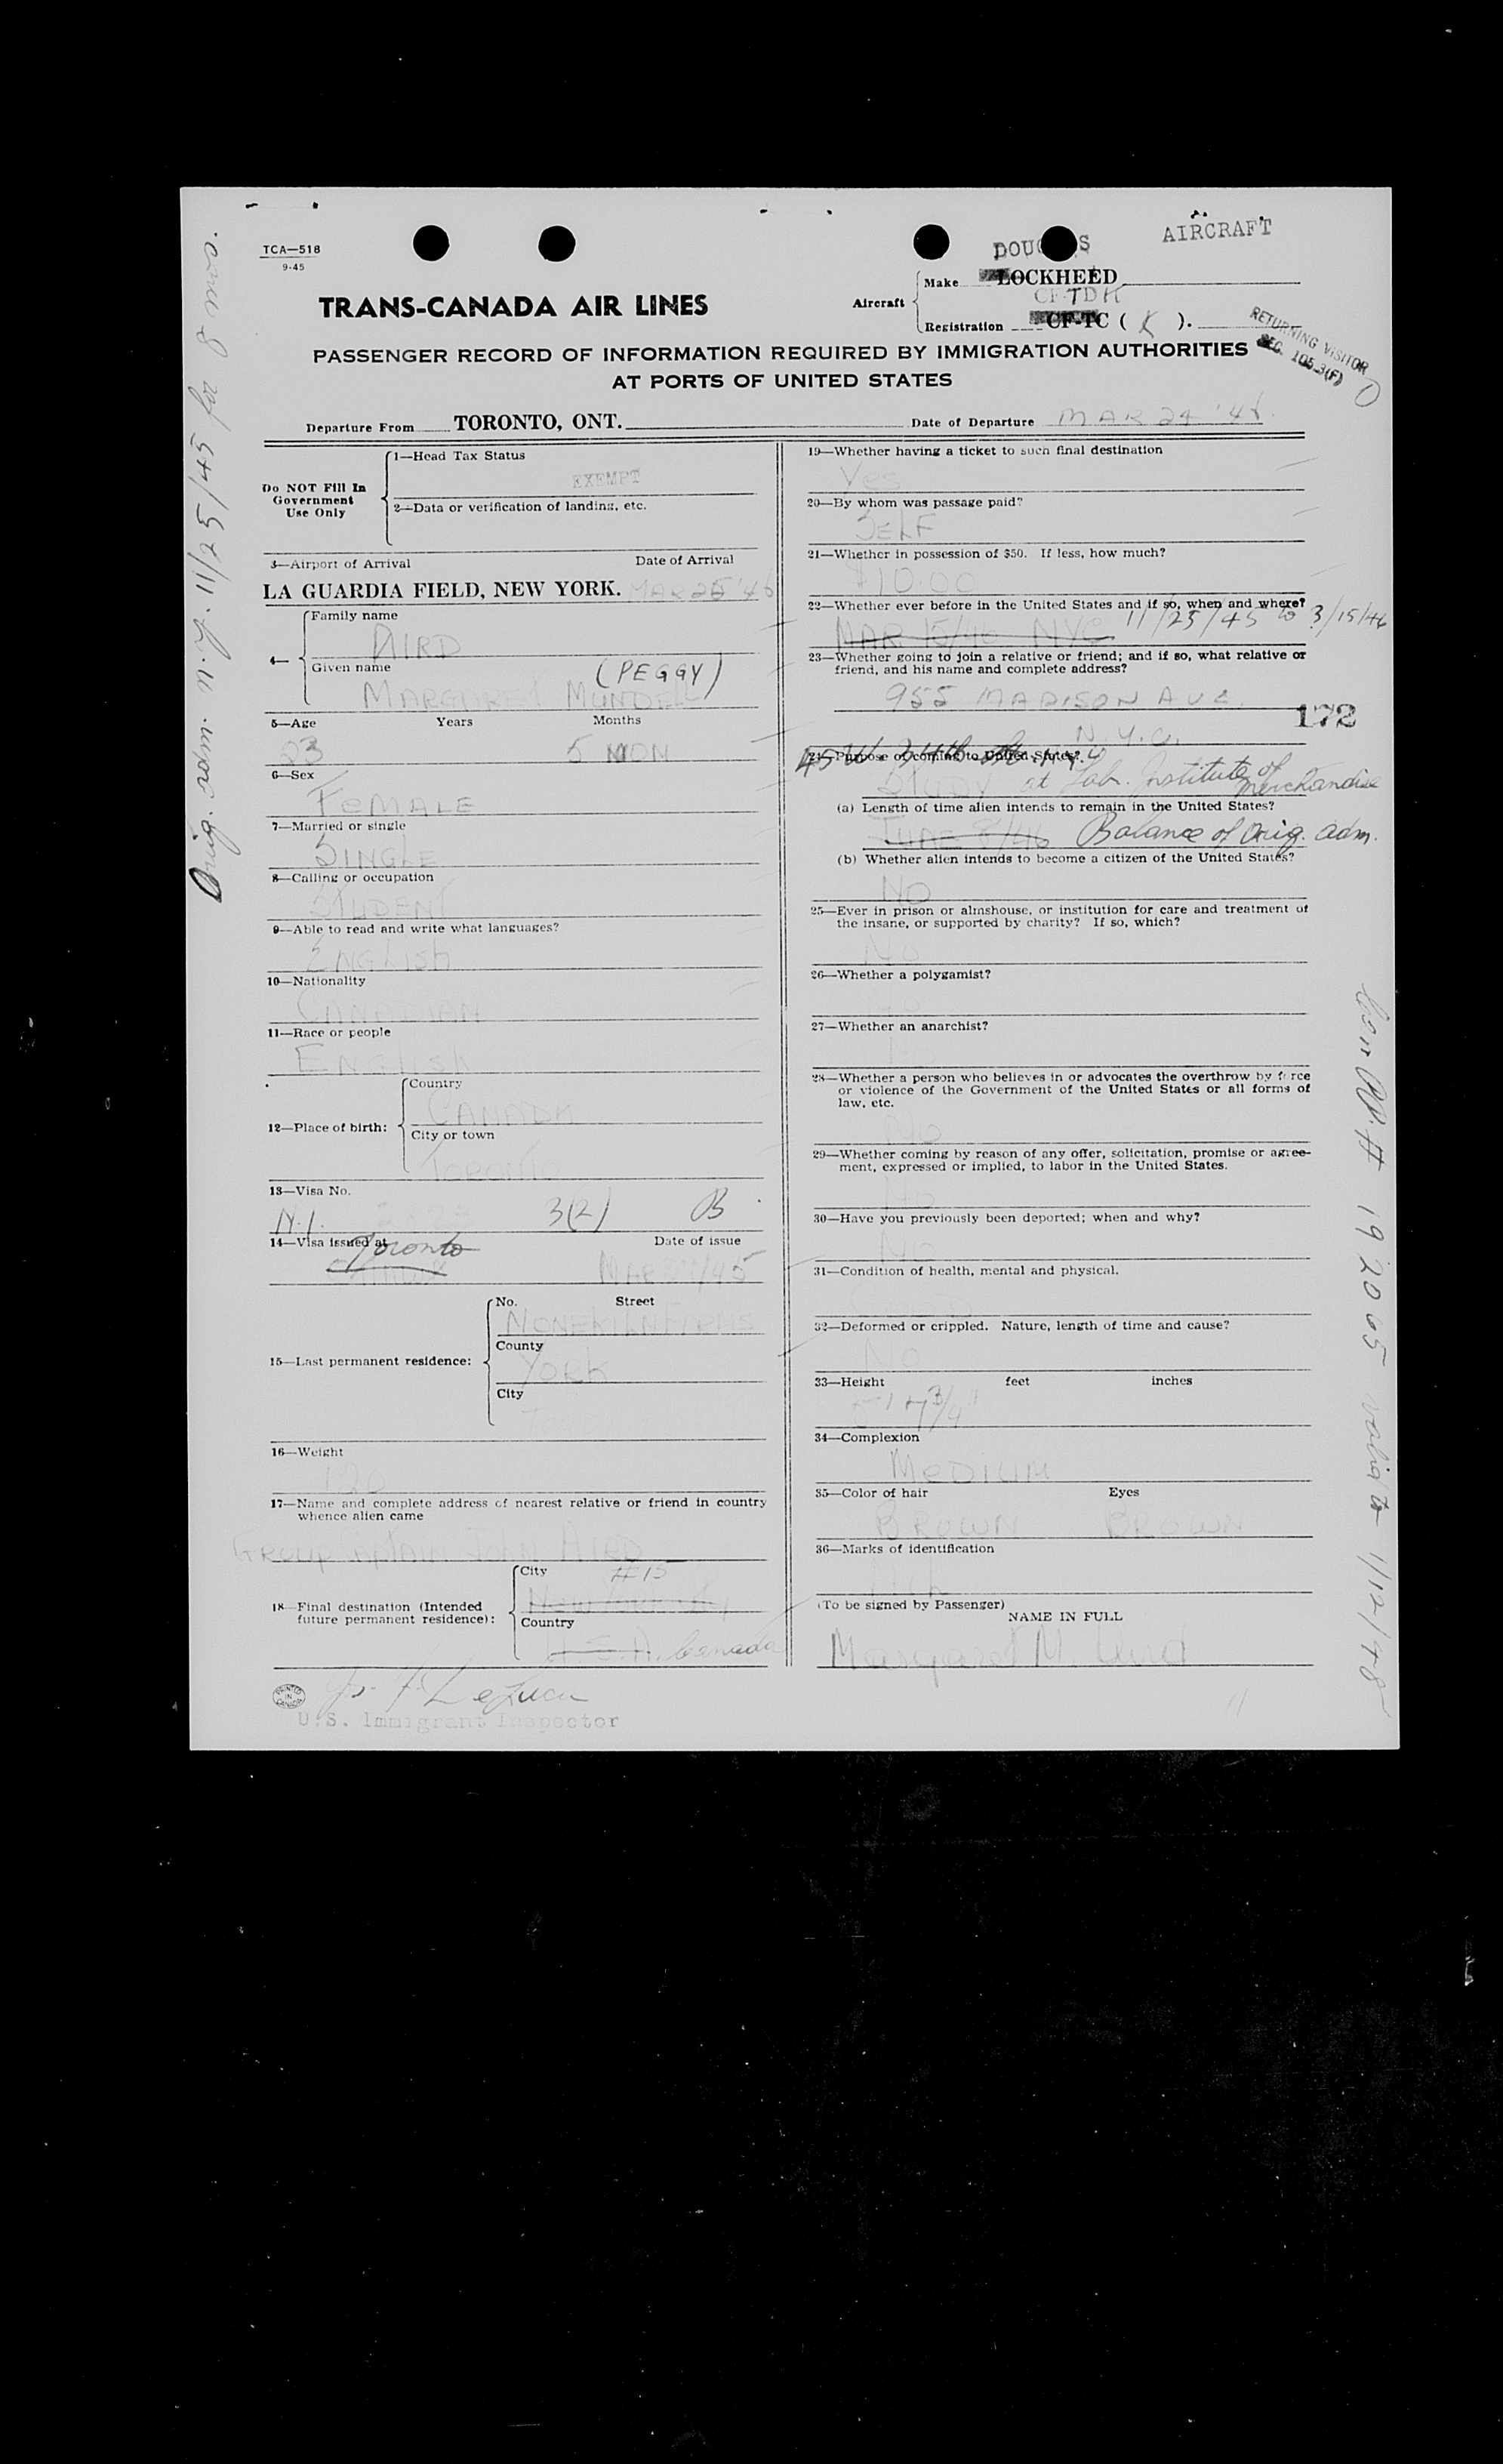 TCA—518
9-45
AIRCRAFT
TRANS-CANADA AIR LINES
Aircraft
Make LOCKHEED
CF-TDK
Registration CF-TC ( K ).
RETURNING VISITOR
SEC. 105.3(F)
PASSENGER RECORD OF INFORMATION REQUIRED BY IMMIGRATION AUTHORITIES
AT PORTS OF UNITED STATES
Departure From TORONTO, ONT.
Date of Departure MAR 24 '46.
Orig. adm. N.Y. 11/25/45 for 8 mos.
Do NOT Fill In
Government
Use Only
1—Head Tax Status
EXEMPT
2—Data or verification of landing, etc.
3—Airport of Arrival Date of Arrival
LA GUARDIA FIELD, NEW YORK. MAR 25 '46
4—
Family name
AIRD
Given name (PEGGY)
MARGARET MUNDELL
5—Age Years Months
23 5 MON
6—Sex
FEMALE
7—Married or single
SINGLE
8—Calling or occupation
STUDENT
9—Able to read and write what languages?
ENGLISH
10—Nationality
CANADIAN
11—Race or people
ENGLISH
12—Place of birth:
Country
CANADA
City or town
TORONTO
13—Visa No.
3(2) B
14—Visa issued at Toronto Date of issue
15—Last permanent residence:
No. Street
County
YORK
City
16—Weight
120
17—Name and complete address of nearest relative or friend in country
whence alien came
GROUP CAPTAIN JOHN AIRD
18—Final destination (Intended
future permanent residence):
City #15
Country
U.S.A. Canada
U.S. Immigrant Inspector
19—Whether having a ticket to such final destination
Yes
20—By whom was passage paid?
SELF
21—Whether in possession of $50. If less, how much?
$10.00
22—Whether ever before in the United States and if so, when and where?
MAR 15/46 NYC 11/25/45 to 3/15/46
23—Whether going to join a relative or friend; and if so, what relative or
friend, and his name and complete address?
955 MADISON AVE.
172
N.Y.C.
45 W. 34th St. N.Y.
24—Purpose of coming to United States?
STUDY at Lab. Institute of Merchandise
(a) Length of time alien intends to remain in the United States?
Balance of Orig. adm.
(b) Whether alien intends to become a citizen of the United States?
NO
25—Ever in prison or almshouse, or institution for care and treatment of
the insane, or supported by charity? If so, which?
No
26—Whether a polygamist?
27—Whether an anarchist?
28—Whether a person who believes in or advocates the overthrow by force
or violence of the Government of the United States or all forms of
law, etc.
No
29—Whether coming by reason of any offer, solicitation, promise or agree-
ment, expressed or implied, to labor in the United States.
No
30—Have you previously been deported; when and why?
No
31—Condition of health, mental and physical.
32—Deformed or crippled. Nature, length of time and cause?
No
33—Height feet inches
5' 7 3/4"
34—Complexion
MEDIUM
35—Color of hair Eyes
BROWN BROWN
36—Marks of identification
(To be signed by Passenger)
NAME IN FULL
Margaret M. Aird